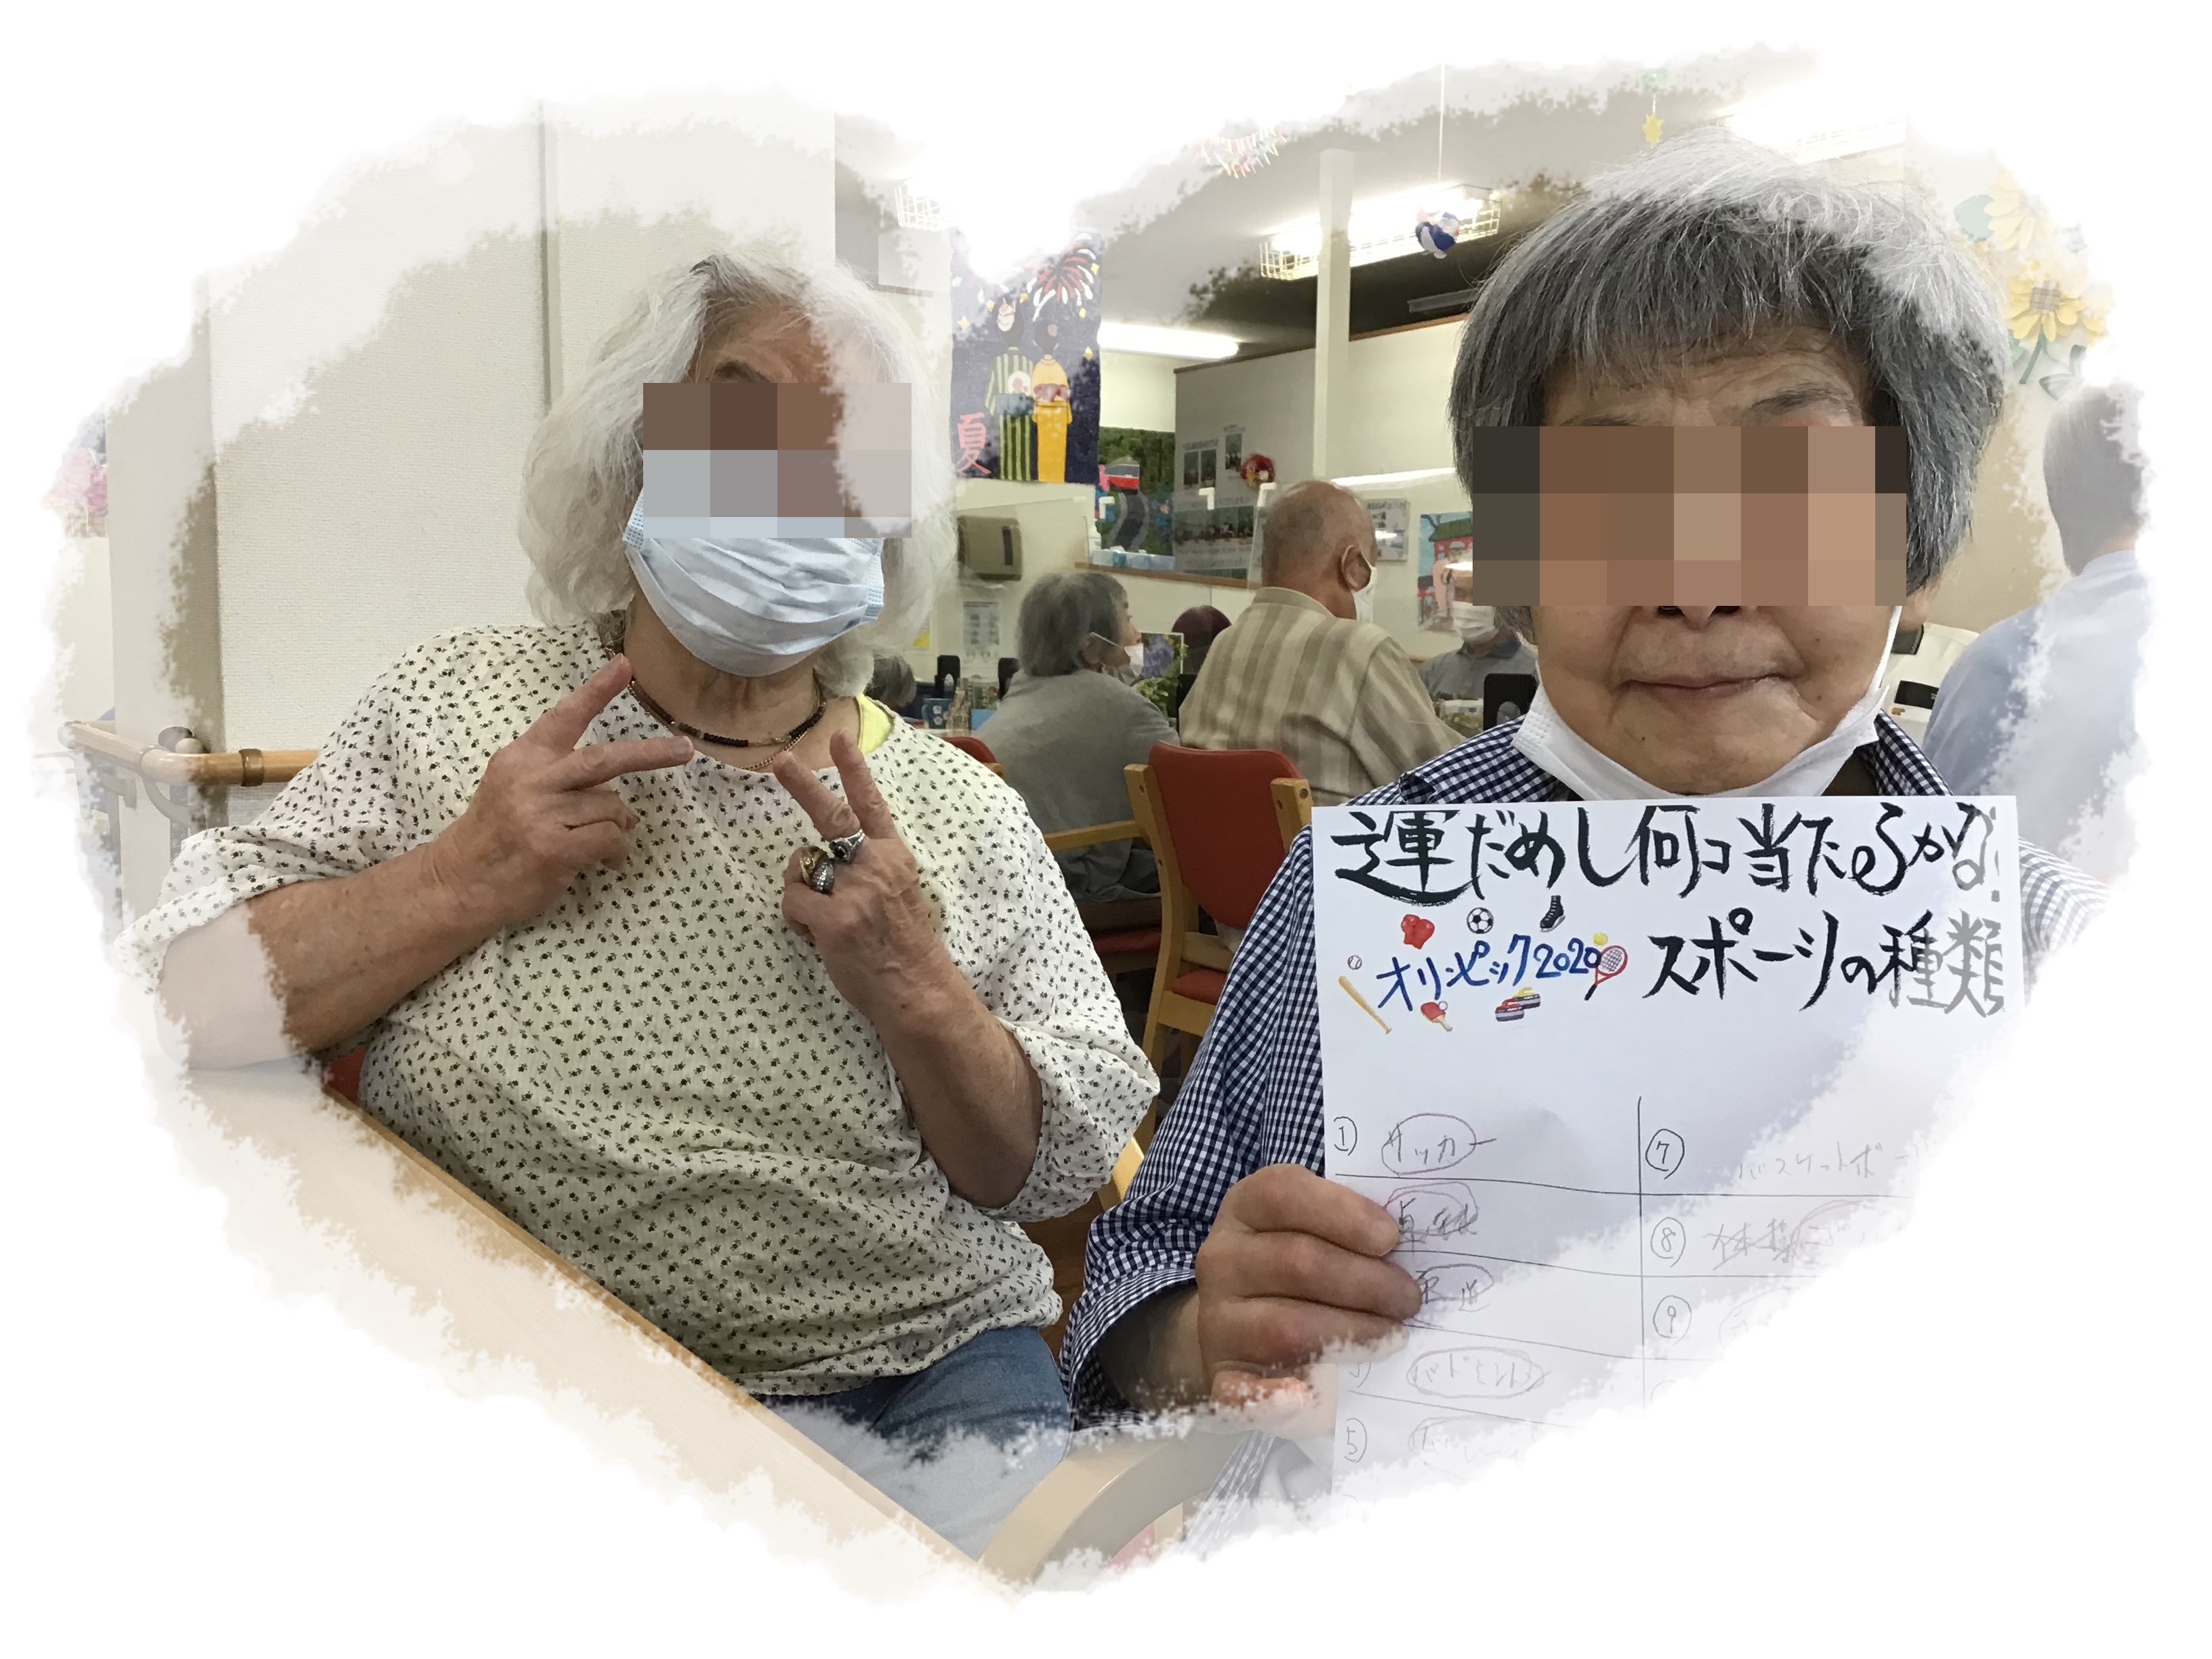 夏
運だめし何コ当たるかな!
オリンピック2020 スポーツの種類
① サッカー
⑦ バスケットボー
卓球
⑧ 体操
柔道
⑨
バドミントン
5